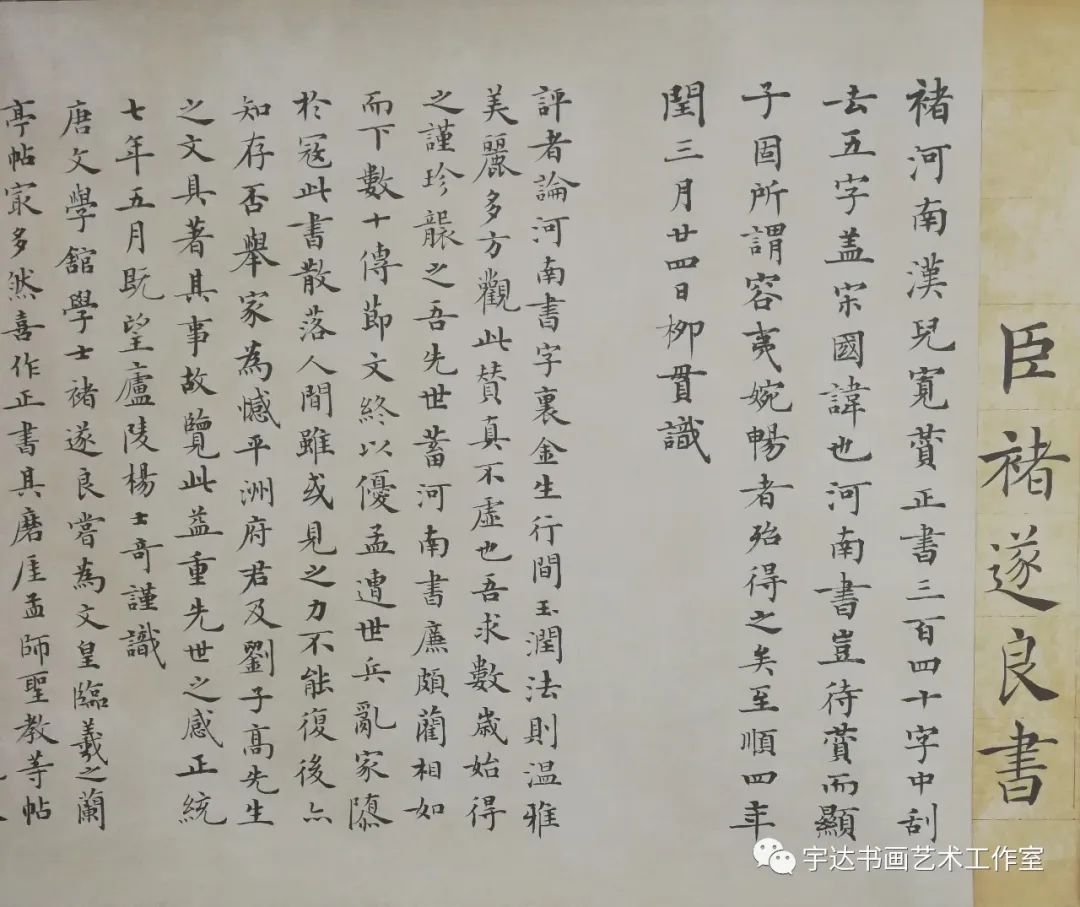 臣褚遂良書
褚河南漢兒寬贊正書三百四十字中刮
去五字盖宋國諱也河南書豈待賛而顯
子固所謂容夷婉暢者殆得之矣至順四年
閏三月廿四日柳貫識
評者論河南書字裏金生行間玉潤法則温雅
美麗多方觀此賛真不虛也吾求數歲始得
之謹珍襲之吾先世蓄河南書廉頗藺相如
而下數十傳節文終以優孟遭世兵亂家隳
於冦此書散落人間雖或見之力不能復後亦
知存否舉家為憾平洲府君及劉子高先生
之文具著其事故覽此益重先世之感正統
七年五月既望廬陵楊士奇謹識
唐文學舘學士褚遂良嘗為文皇臨羲之蘭
亭帖㝡多然喜作正書其磨厓孟師聖教等帖
宇达书画艺术工作室